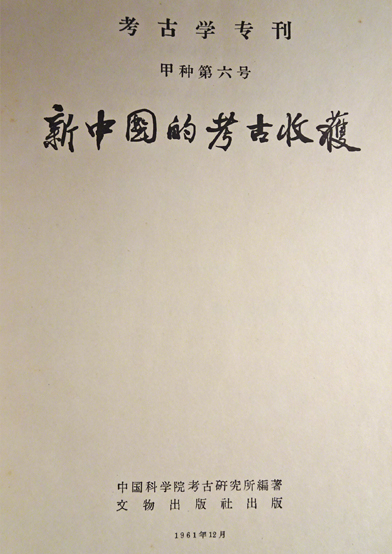 考古学专刊
甲种第六号
新中國的考古收穫
中国科学院考古研究所編著
文物出版社出版
1961年12月